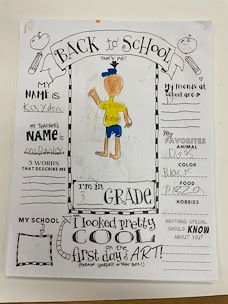 BACK to SCHOOL
That's me!
MY NAME IS
Kayden
My friends at school are
MY TEACHER'S NAME IS
3 WORDS THAT DESCRIBE ME
My FAVORITES
ANIMAL
Dog
COLOR
Black
FOOD
Pizza
HOBBIES
I'm in
GRADE
MY SCHOOL
I looked pretty
COOL
on the
first day of ART!
ANYTHING SPECIAL
I SHOULD KNOW
ABOUT YOU?